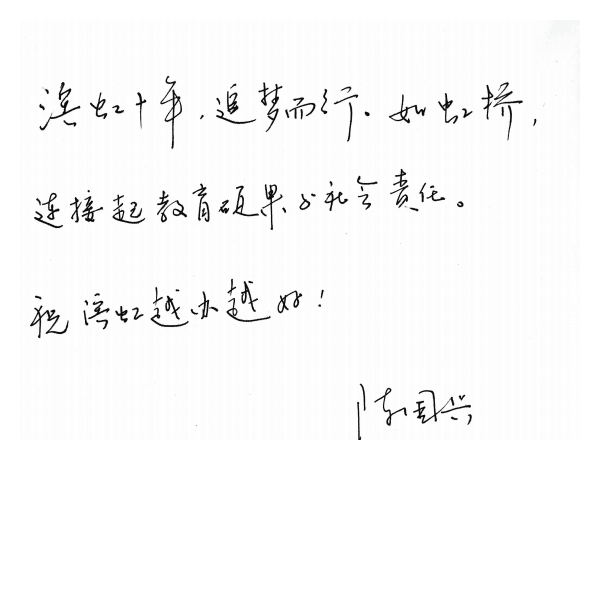 滨虹十年，追梦而行。如虹桥，
连接起教育硕果与社会责任。
祝滨虹越办越好！
陈国兴